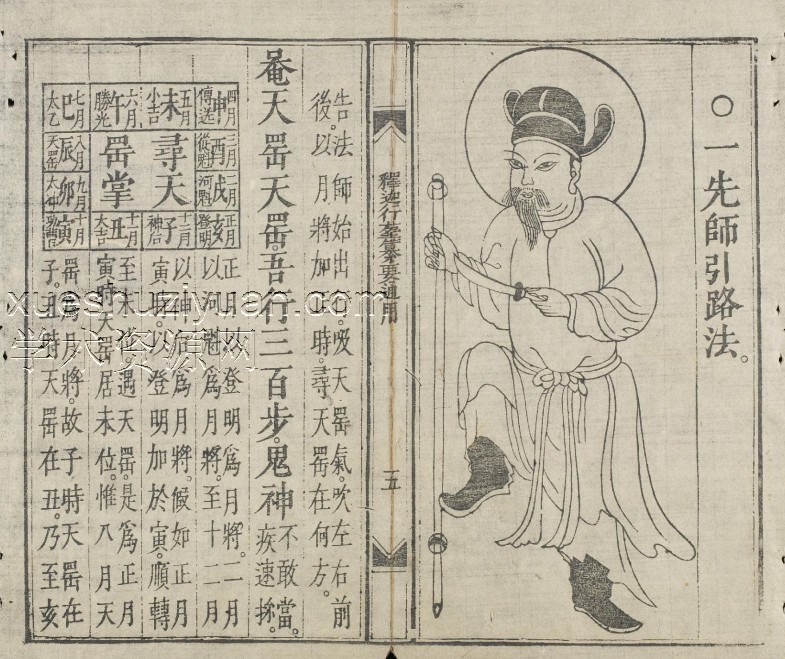 〇一先師引路法。
五
告法師始出行。吸天罡氣。吹左右前
後。以月將加正時。尋天罡在何方。
菴天罡天罡。吾行三百步。鬼神不敢當。疾速
四月申傳送
五月未小吉
六月午勝光
七月巳太乙
三月酉從魁
尋天
罡掌
八月辰天罡
二月戌河魁
九月卯太冲
正月亥登明
十二月子神后
十一月丑大吉
十月寅功曹
正月以登明爲月將。二月
以河魁爲月將。至十二月
以神后爲月將。假如正月
寅時。以登明加於寅。順轉
至未位。遇天罡。是爲正月
寅時天罡居未位。惟八月天
罡爲月將。故子時天罡在
子。丑時天罡在丑。乃至亥
xueshuziyuan.com
学术资源网